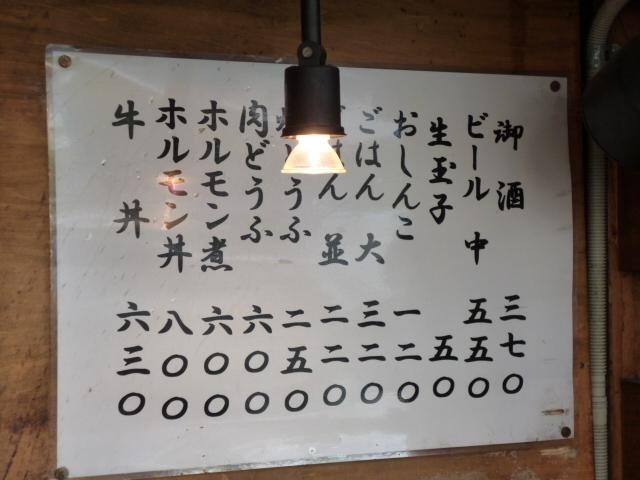 御酒 三七〇
ビール 中 五五〇
生玉子 五〇
おしんこ 一二〇
ごはん 大 三二〇
はん 並 二二〇
うふ 二五〇
肉どうふ 六〇〇
ホルモン煮 六〇〇
ホルモン丼 八〇〇
牛丼 六三〇